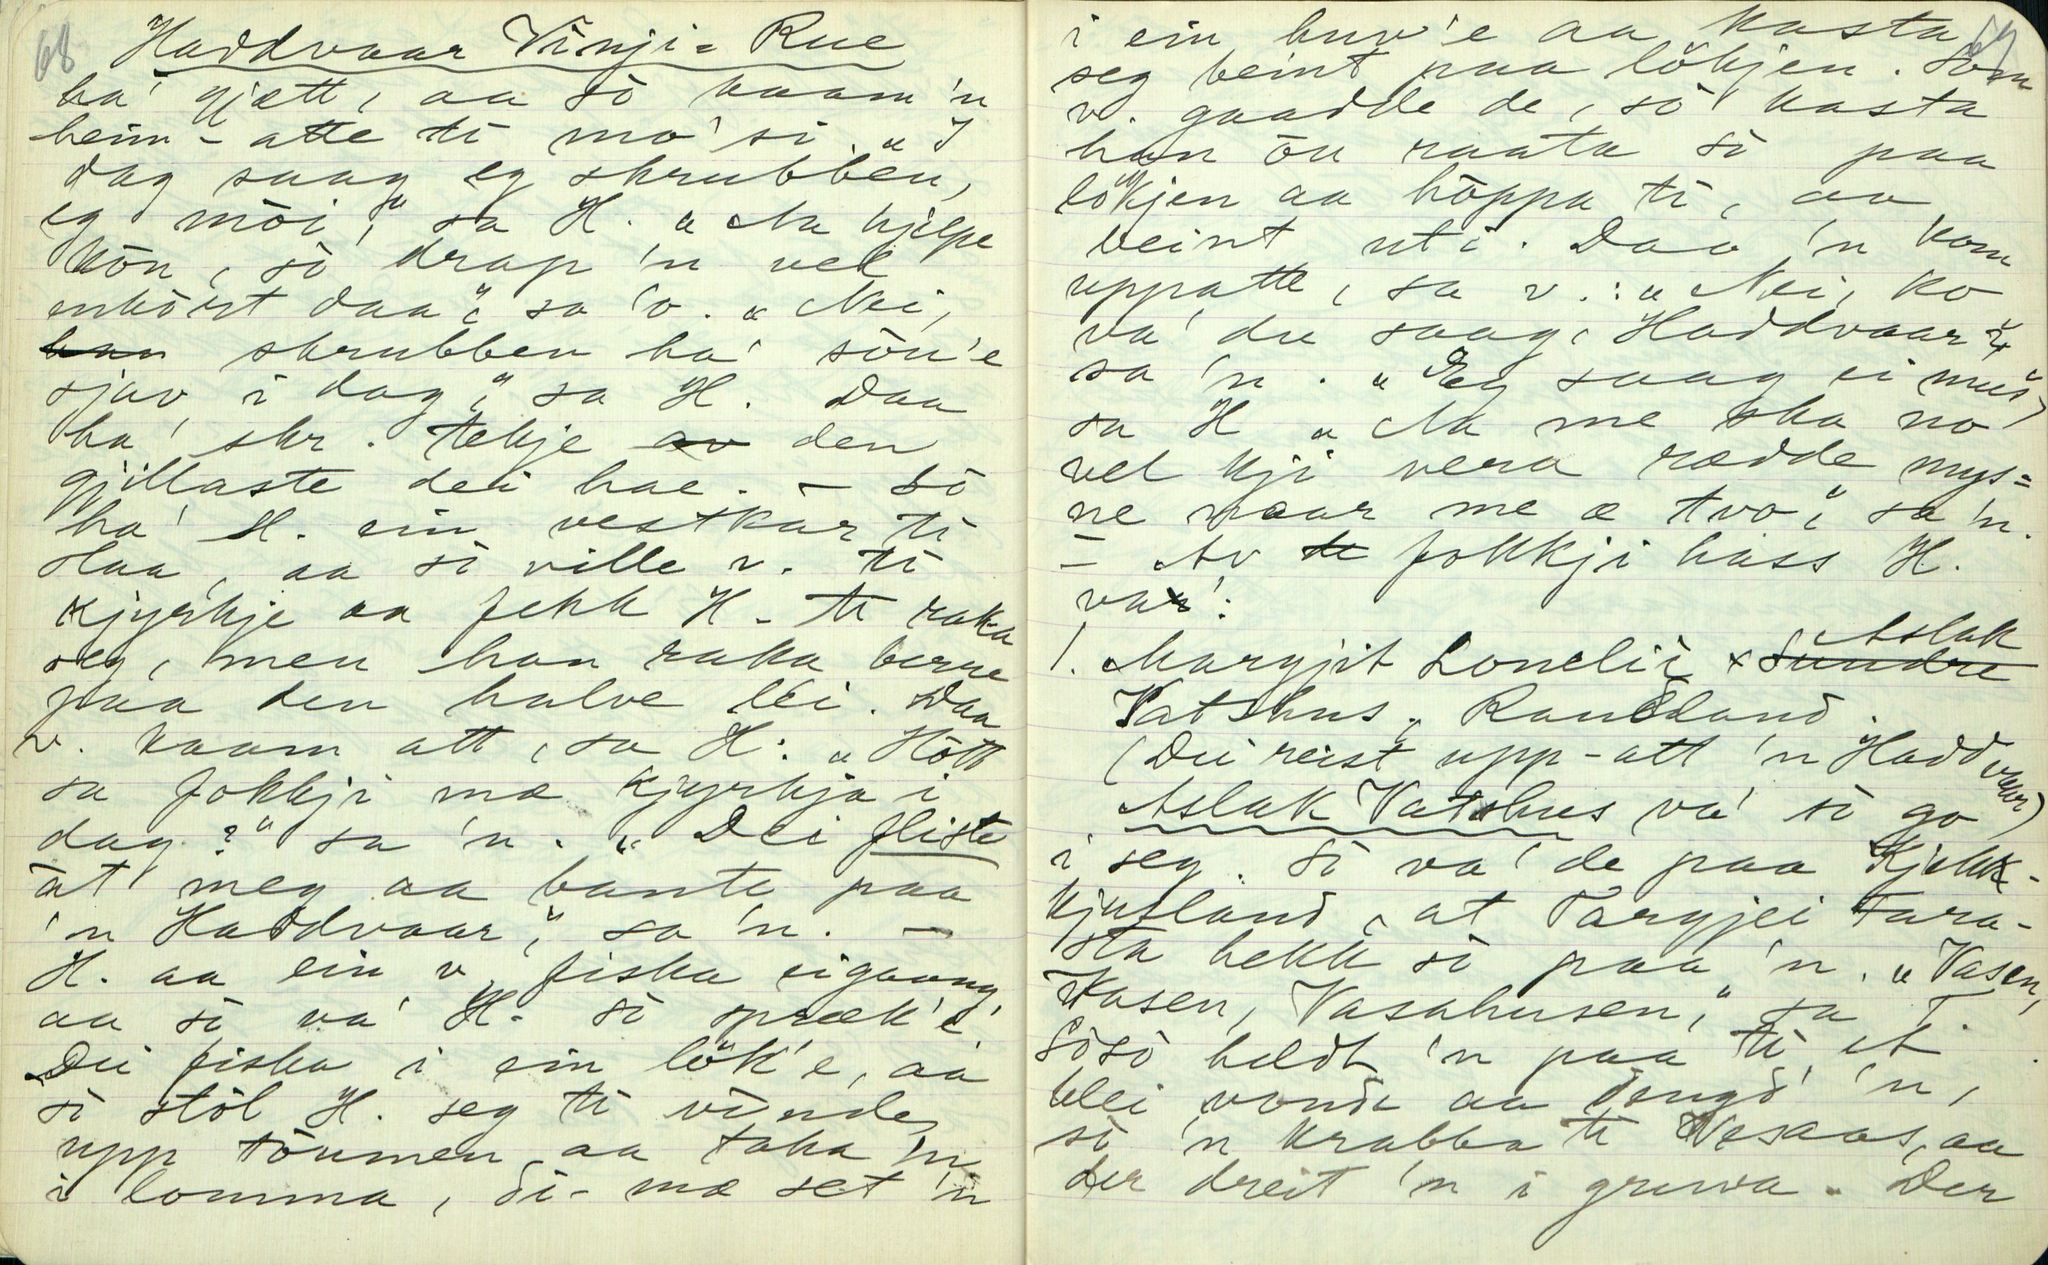 68
Haddvaar Vinji-Rue
ha' gjætt, aa so kaam 'n
heim-atte ti mo'si. „I
dag saag eg skrubben,
eg möi," sa H. „Aa hjelpe
kon, so drap 'n vel
inkort daa", sa 'o. „Nei,
skrubben ha' son'e
sjav i dag", sa H. Daa
ha' skr. tekje den
gjillaste dei hae. - So
ha' H. ein vestkar ti
Haa, aa so ville v. ti
kjyrkje aa fekk H. te raka
seg, men han raka berre
paa den halve lei. Daa
v. kaam att, sa H: „Hött
sa fokkji mæ kjyrkja i
dag?" sa 'n. „Dei fliste
at meg aa bante paa
'n Haddvaar", sa 'n. -
H. aa ein v. fiska eigaang,
aa so va' H. so spræk'e
Dei fiska i ein lök'e, aa
so stöl H. seg ti vinde
upp toumen aa taka 'n
i lomma, so-mæ set 'n
69
i ein huv'e aa kasta
seg beint paa lökjen. Som
v. gaadde de, so kasta
han ou raata so paa
lökjen aa höppa ti, aa
beint uti. Daa 'n kom
uppatte, sa v.: „Nei, ko
va' du saag, Haddvaar?"
sa 'n. „Eg saag ei mus"
sa H „Aa me ska no
vel kji vera rædde mys=
ne naar me æ tvo", sa 'n.
- Av fokkji hass H.
va':
1. Margjit Lonelii x Aslak
Vatshus, Raudland.
(Dei reist upp-att 'n Haddvaar)
Aslak Vatshus va' so go
i seg. So va' de paa Kjekk-
kjusland, at Targjei Tara-
sta hekk so paa 'n. „Vasen,
Vasen, Vasahusen," sa T.
Soso heldt 'n paa ti A
blei vonde aa dengd' 'n,
so 'n krabba ti Vesaas, aa
der dreit 'n i gruva. Der